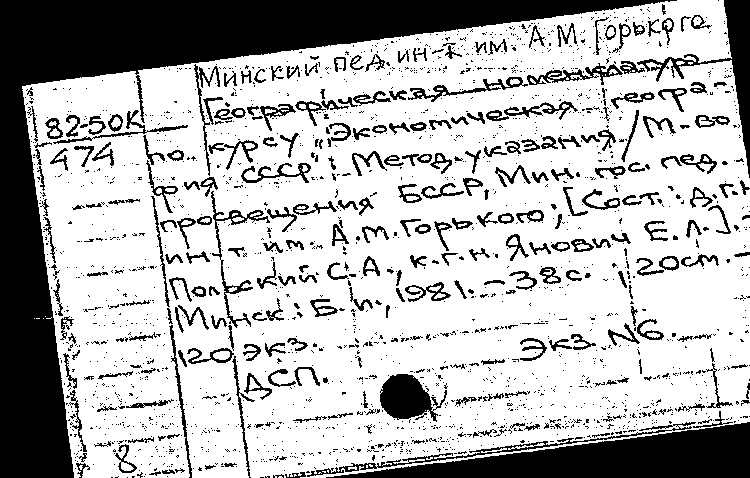 Минский пед. ин-т им. А.М. Горького
82-50К
474
Географическая номенклатура
по курсу "Экономическая геогра-
фия СССР": Метод. указания / М-во
просвещения БССР, Мин. гос. пед.
ин-т им. А.М. Горького; [Сост.: д.г.н.
Польский С.А., к.г.н. Янович Е.Л.]. -
Минск: Б. и., 1981. - 38 с. ; 20 см. -
120 экз.
ДСП.
Экз. N6.
8